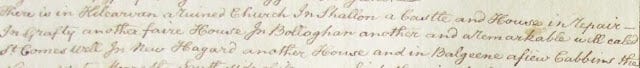 There is in Kilcarvan a ruined Church In Shallon a Castle and House in repair —
In Grafty another faire House In Bollaghan another and a remarkable well called
St Comes Well In New Hagard another House and in Balgeene a fiew Cabbins the